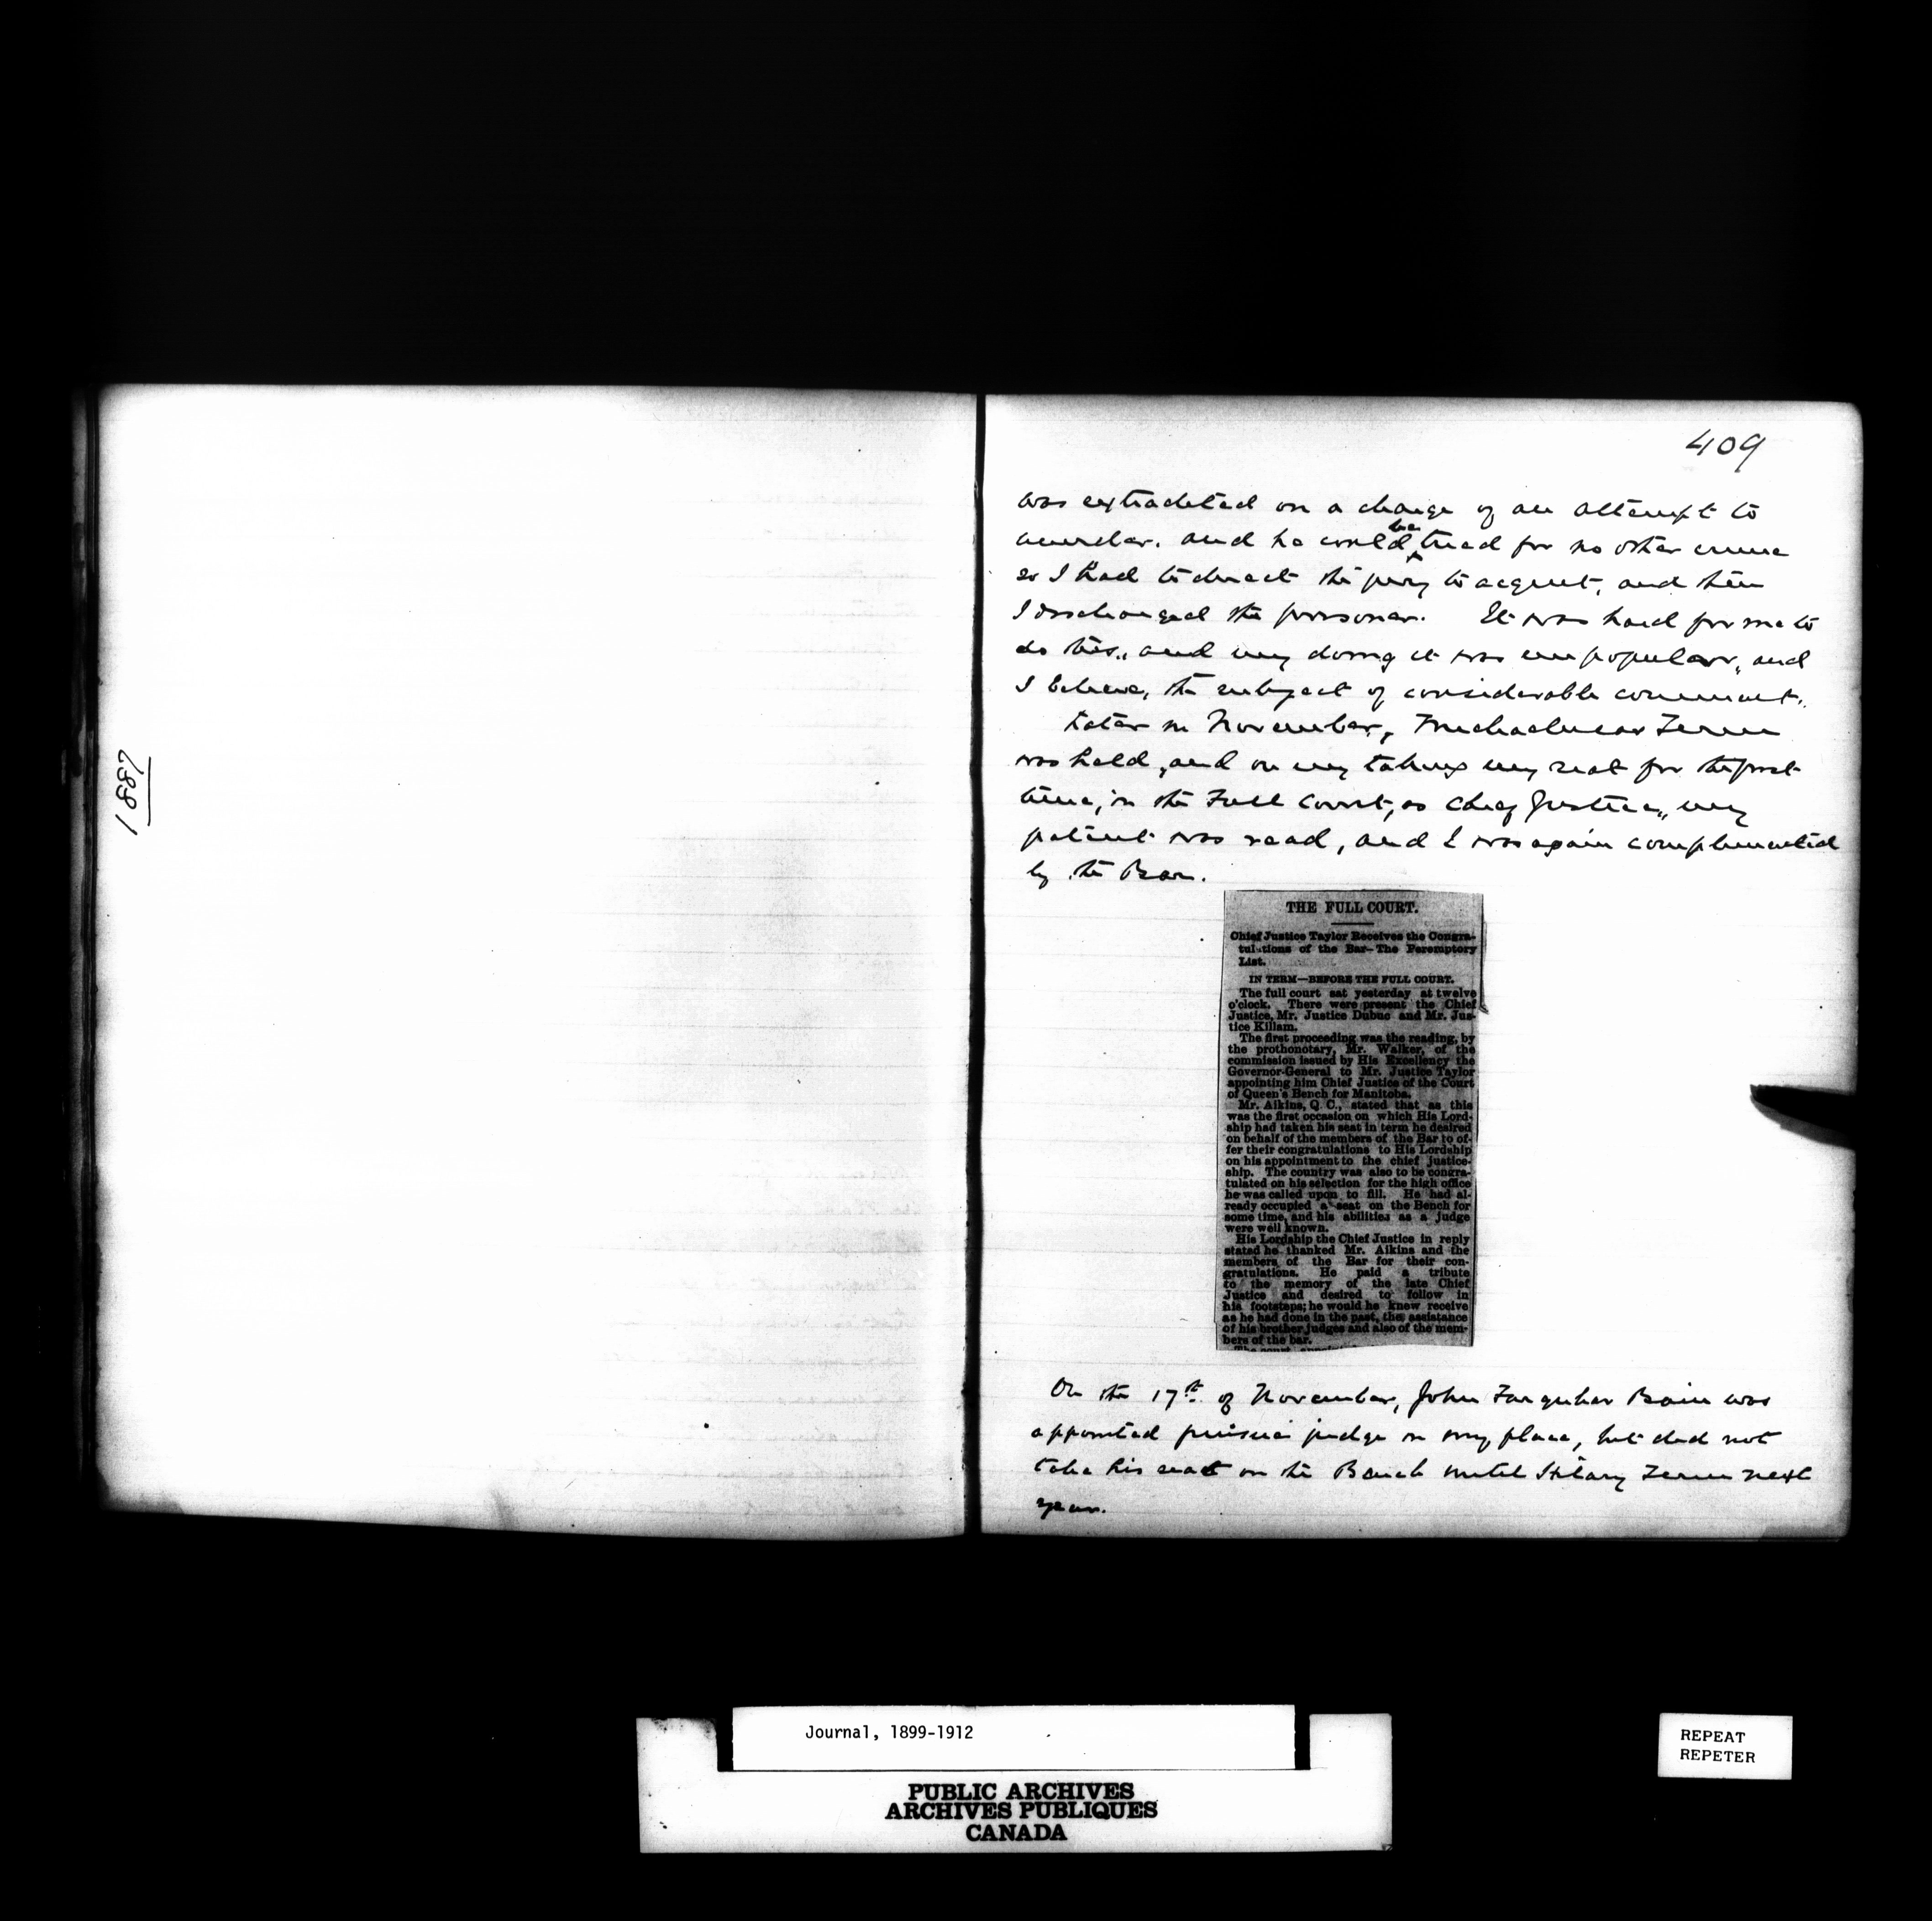 1887
409
was extradited on a charge of an attempt to
murder. and he could be tried for no other crime
so I had to direct the jury to acquit, and then
I discharged the prisoner. It was hard for me to
do this, and my doing it was unpopular, and
I believe, the subject of considerable comment.
Later in November, Michaelmas Term
was held, and on my taking my seat for the first
time, in the Full Court, as Chief Justice, my
patent was read, and I was again complimented
by the Bar.
THE FULL COURT.
Chief Justice Taylor Receives the Congra-
tulations of the Bar—The Peremptory
List.
IN TERM—BEFORE THE FULL COURT.
The full court sat yesterday at twelve
o'clock. There were present the Chief
Justice, Mr. Justice Dubuc and Mr. Jus-
tice Killam.
The first proceeding was the reading, by
the prothonotary, Mr. Walker, of the
commission issued by His Excellency the
Governor-General to Mr. Justice Taylor
appointing him Chief Justice of the Court
of Queen's Bench for Manitoba.
Mr. Aikins, Q. C., stated that as this
was the first occasion on which His Lord-
ship had taken his seat in term he desired
on behalf of the members of the Bar to of-
fer their congratulations to His Lordship
on his appointment to the chief justice-
ship. The country was also to be congra-
tulated on his selection for the high office
he was called upon to fill. He had al-
ready occupied a seat on the Bench for
some time, and his abilities as a judge
were well known.
His Lordship the Chief Justice in reply
stated he thanked Mr. Aikins and the
members of the Bar for their con-
gratulations. He paid a tribute
to the memory of the late Chief
Justice and desired to follow in
his footsteps; he would he knew receive
as he had done in the past, the assistance
of his brother judges and also of the mem-
bers of the bar.
The court
On the 17th of November, John Farquhar Bain was
appointed puisne judge in my place, but did not
take his seat on the Bench until Hilary Term next
year.
Journal, 1899-1912
PUBLIC ARCHIVES
ARCHIVES PUBLIQUES
CANADA
REPEAT
REPETER